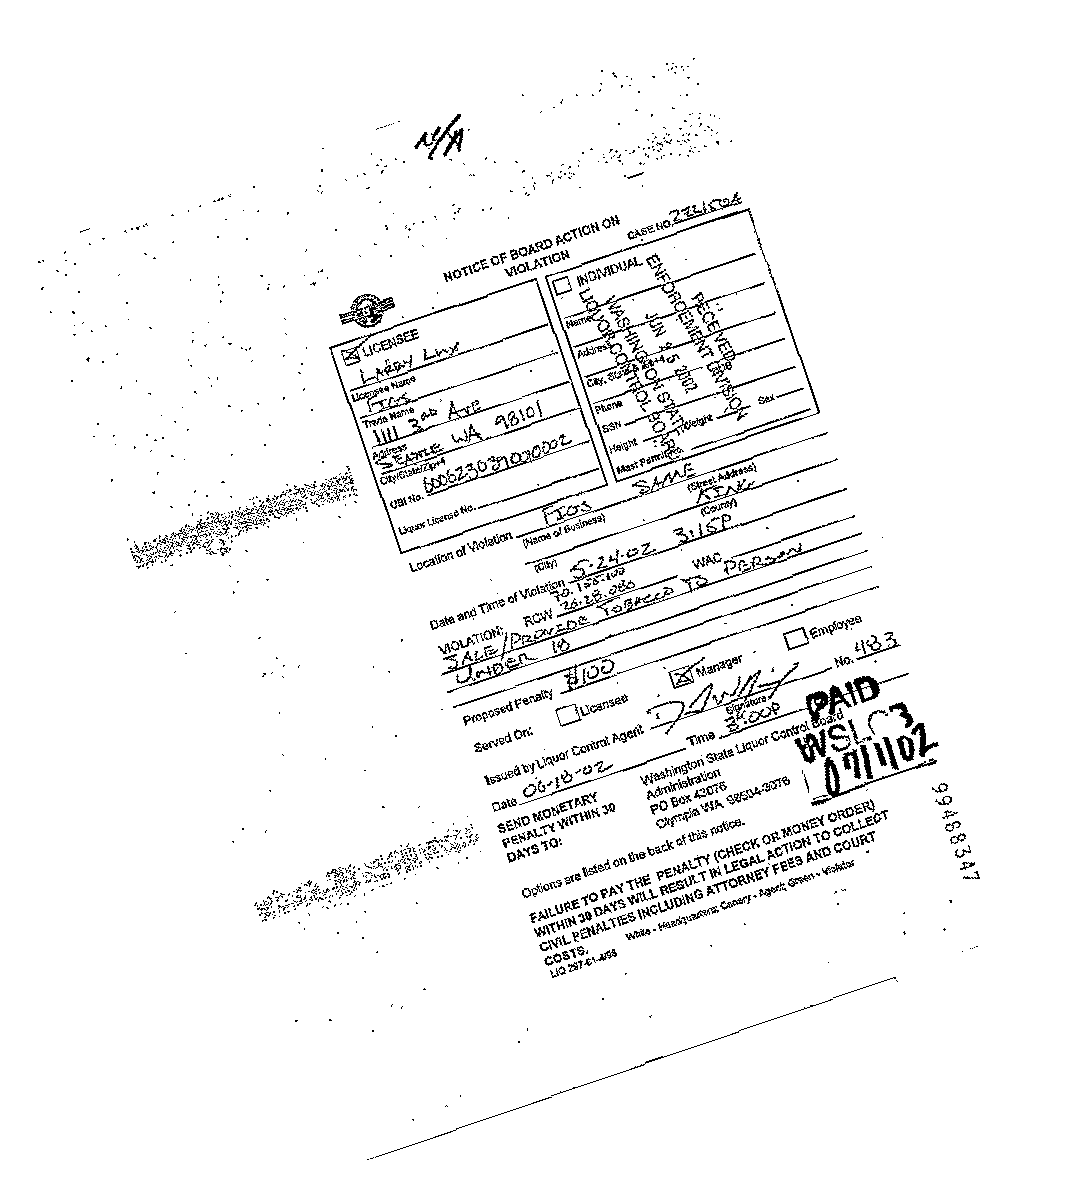 N/A
NOTICE OF BOARD ACTION ON
VIOLATION
CASE NO.
LICENSEE
LARRY LUX
Licensee Name
FIGS
Trade Name
1111 3RD AVE
Address
SEATTLE WA 98101
City/State/Zip+4
UBI No. 6006230390010002
Liquor License No.
INDIVIDUAL
Name
Address
City, State
Phone
SSN
Sex
Height
Weight
Mast Permit
RECEIVED
ENFORCEMENT DIVISION
JUN 25 2002
WASHINGTON STATE
LIQUOR CONTROL BOARD
Location of Violation FIGS SAME
(Name of Business) (Street Address)
KING
(City) (County)
Date and Time of Violation 5-24-02 3:15P
70.155.100
VIOLATION: RCW 26.28.080 WAC
SALE/PROVIDE TOBACCO TO PERSON
UNDER 18
Proposed Penalty $100
Served On: Licensee Manager Employee
Issued by Liquor Control Agent No. 483
Signature
Date 06-18-02 Time 3:00P
SEND MONETARY
PENALTY WITHIN 30
DAYS TO:
Washington State Liquor Control Board
Administration
PO Box 43076
Olympia WA 98504-3076
PAID
WSLCB
07/1/02
Options are listed on the back of this notice.
FAILURE TO PAY THE PENALTY (CHECK OR MONEY ORDER)
WITHIN 30 DAYS WILL RESULT IN LEGAL ACTION TO COLLECT
CIVIL PENALTIES INCLUDING ATTORNEY FEES AND COURT
COSTS.
White - Headquarters; Canary - Agent; Green - Violator
99468347